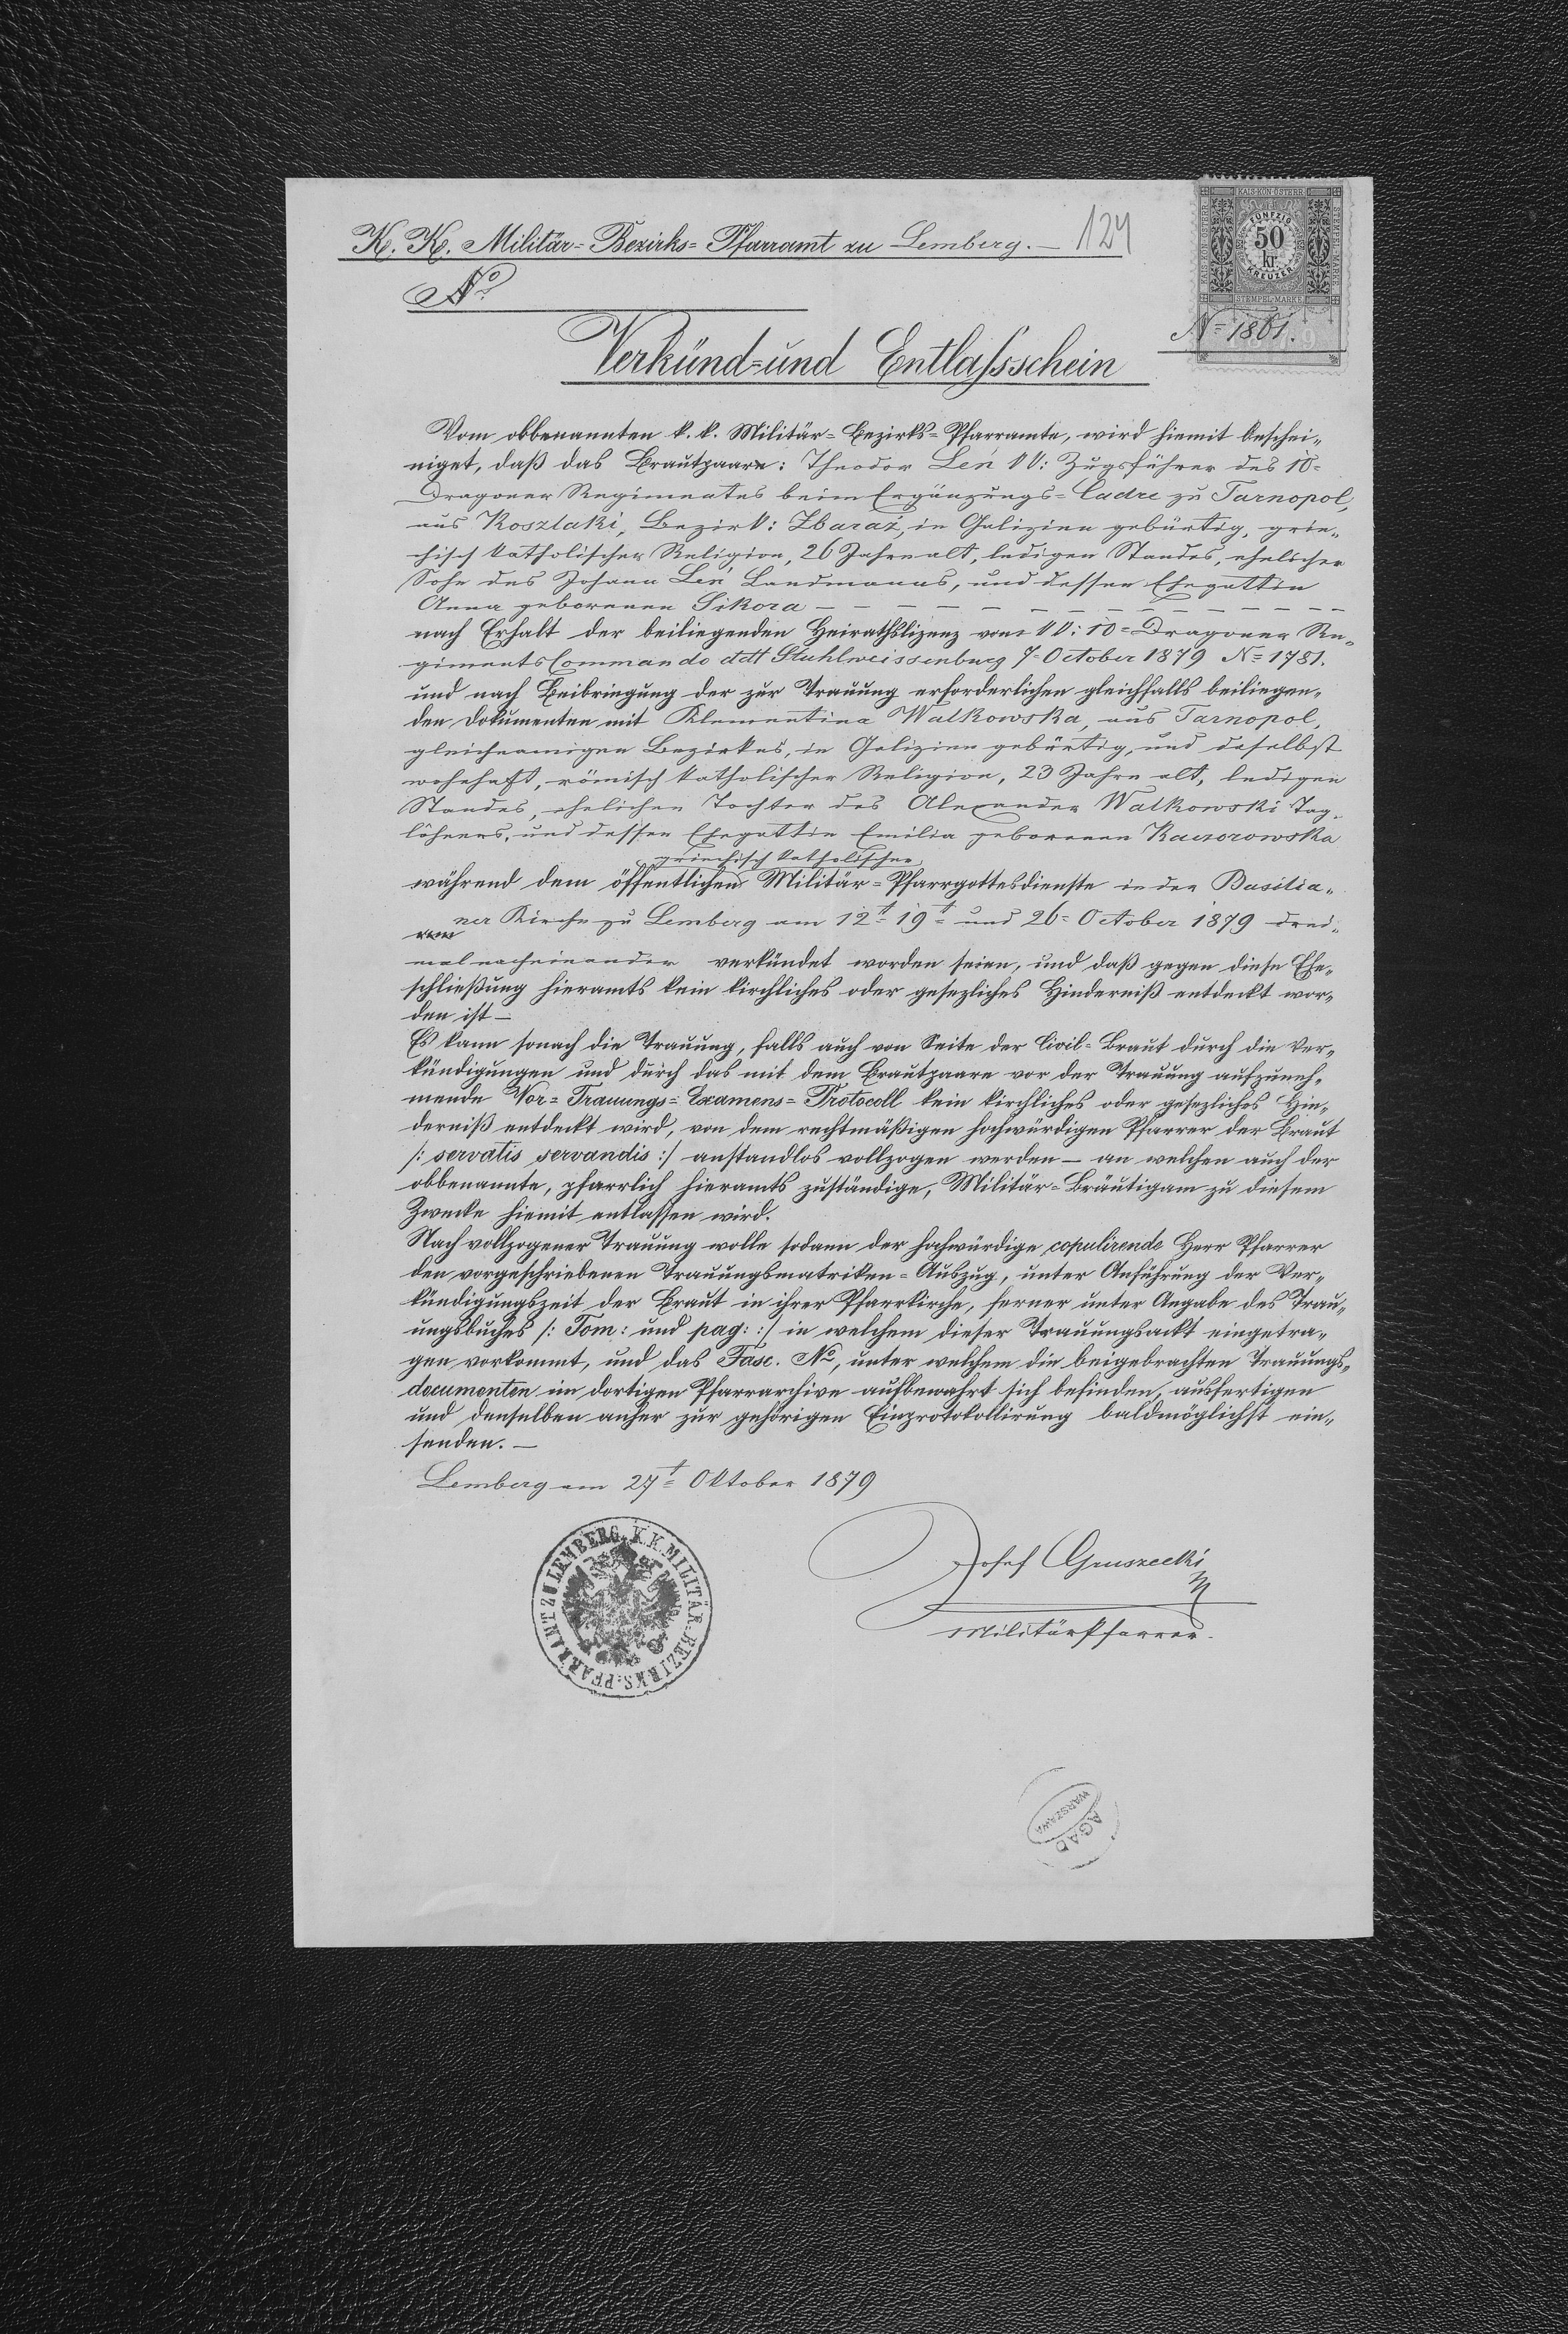 K. K. Militär-Bezirks-Pfarramt zu Lemberg.—
124
KAIS·KÖN·ÖSTERR.
FÜNFZIG
50
kr.
KREUZER
STEMPEL-MARKE
No
N= 1861.
Verkünd-und Entlaßschein
Vom obbenannten k. k. Militär-Bezirks-Pfarramte, wird hiemit beschei-
niget, daß das Brautpaar: Theodor Leń Zugsführer des 10=
Dragoner Regimentes beim Ergänzungs-Cadre zu Tarnopol,
aus Koszlaki, Bezirk: Zbaraż, in Galizien gebürtig, grie-
chisch katholischer Religion, 26 Jahre alt, ledigen Standes, ehelicher
Sohn des Johann Leń Landmanns, und dessen Ehegattin
Anna geborenen Sikora
nach Erhalt der beiliegenden Heirathslizenz vom 10= Dragoner Re-
giments Commando ddt Stuhlweissenburg 7= October 1879 N= 1781.
und nach Beibringung der zur Trauung erforderlichen gleichfalls beiliegen-
den Dokumenten mit Klementina Walkowska, aus Tarnopol,
gleichnamigen Bezirkes, in Galizien gebürtig, und daselbst
wohnhaft, römisch katholischer Religion, 23 Jahre alt, ledigen
Standes, ehelichen Tochter des Alexander Walkowski Tag-
löhners, und dessen Ehegattin Emilia geborenen Kaczorowska
griechisch katholischen
während dem öffentlichen Militär-Pfarrgottesdienste in der Basilia-
ner Kirche zu Lemberg am 12t 19t und 26= October 1879 drei-
mal nacheinander verkündet worden seien, und daß gegen diese Ehe-
schließung hieramts kein kirchliches oder gesezliches Hinderniß entdeckt wor-
den ist—
Es kann sonach die Trauung, falls auch von Seite der Civil-Braut durch die Ver-
kündigungen und durch das mit dem Brautpaare vor der Trauung aufzuneh-
mende Vor-Trauungs-Examens-Protocoll kein kirchliches oder gesezliches Hin-
derniß entdeckt wird, von dem rechtmäßigen hochwürdigen Pfarrer der Braut
/: servatis servandis :/ anstandlos vollzogen werden — an welchen auch der
obbenannte, pfarrlich hieramts zuständige, Militär-Bräutigam zu diesem
Zwecke hiemit entlassen wird.
Nach vollzogener Trauung wolle sodann der hochwürdige copulirende Herr Pfarrer
den vorgeschriebenen Trauungsmatriken-Auszug, unter Anführung der Ver-
kündigungszeit der Braut in ihrer Pfarrkirche, ferner unter Angabe des Trau-
ungsbuches /: Tom: und pag: :/ in welchem dieser Trauungsackt eingetra-
gen vorkommt, und das Fasc. No, unter welchem die beigebrachten Trauungs-
documenten im dortigen Pfarrarchive aufbewahrt sich befinden, ausfertigen
und denselben anher zur gehörigen Einprotokollirung baldmöglichst ein-
senden.—
Lemberg am 27t Oktober 1879
Josef Gruszecki
Militärpfarrer.
K.K. MILITÄR-BEZIRKS-PFARRAMT ZU LEMBERG
AGAD
WARSZAWA